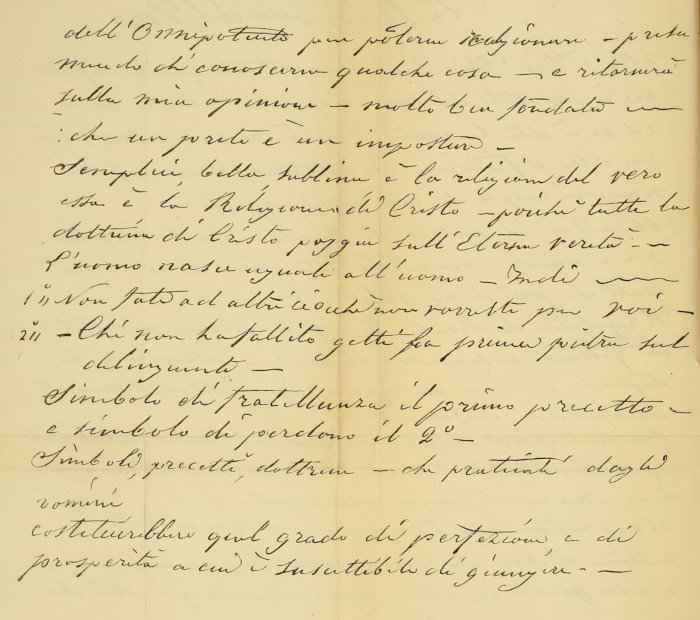 dell'Onnipotente per poterne ragionare – presu
mendo di conoscerne qualche cosa – e ritornerò
sulla mia opinione – molto ben fondata —
: che un prete è un impostore –
Semplice, bella, sublime è la religione del vero
essa è la Religione di Cristo – poichè tutta la
dottrina di Cristo poggia sull'Eterna verità – –
L'uomo nasce uguale all'uomo – Indi —
1º" Non fate ad altri ciocchè non vorreste per voi –
2º" – Chi non ha fallito getti la prima pietra sul
delinquente –
Simbolo di fratellanza il primo precetto –
e simbolo di perdono il 2º –
Simboli, precetti, dottrine – che praticati dagli
uomini
costituirebbero quel grado di perfezione e di
prosperità a cui è suscettibile di giungere – –